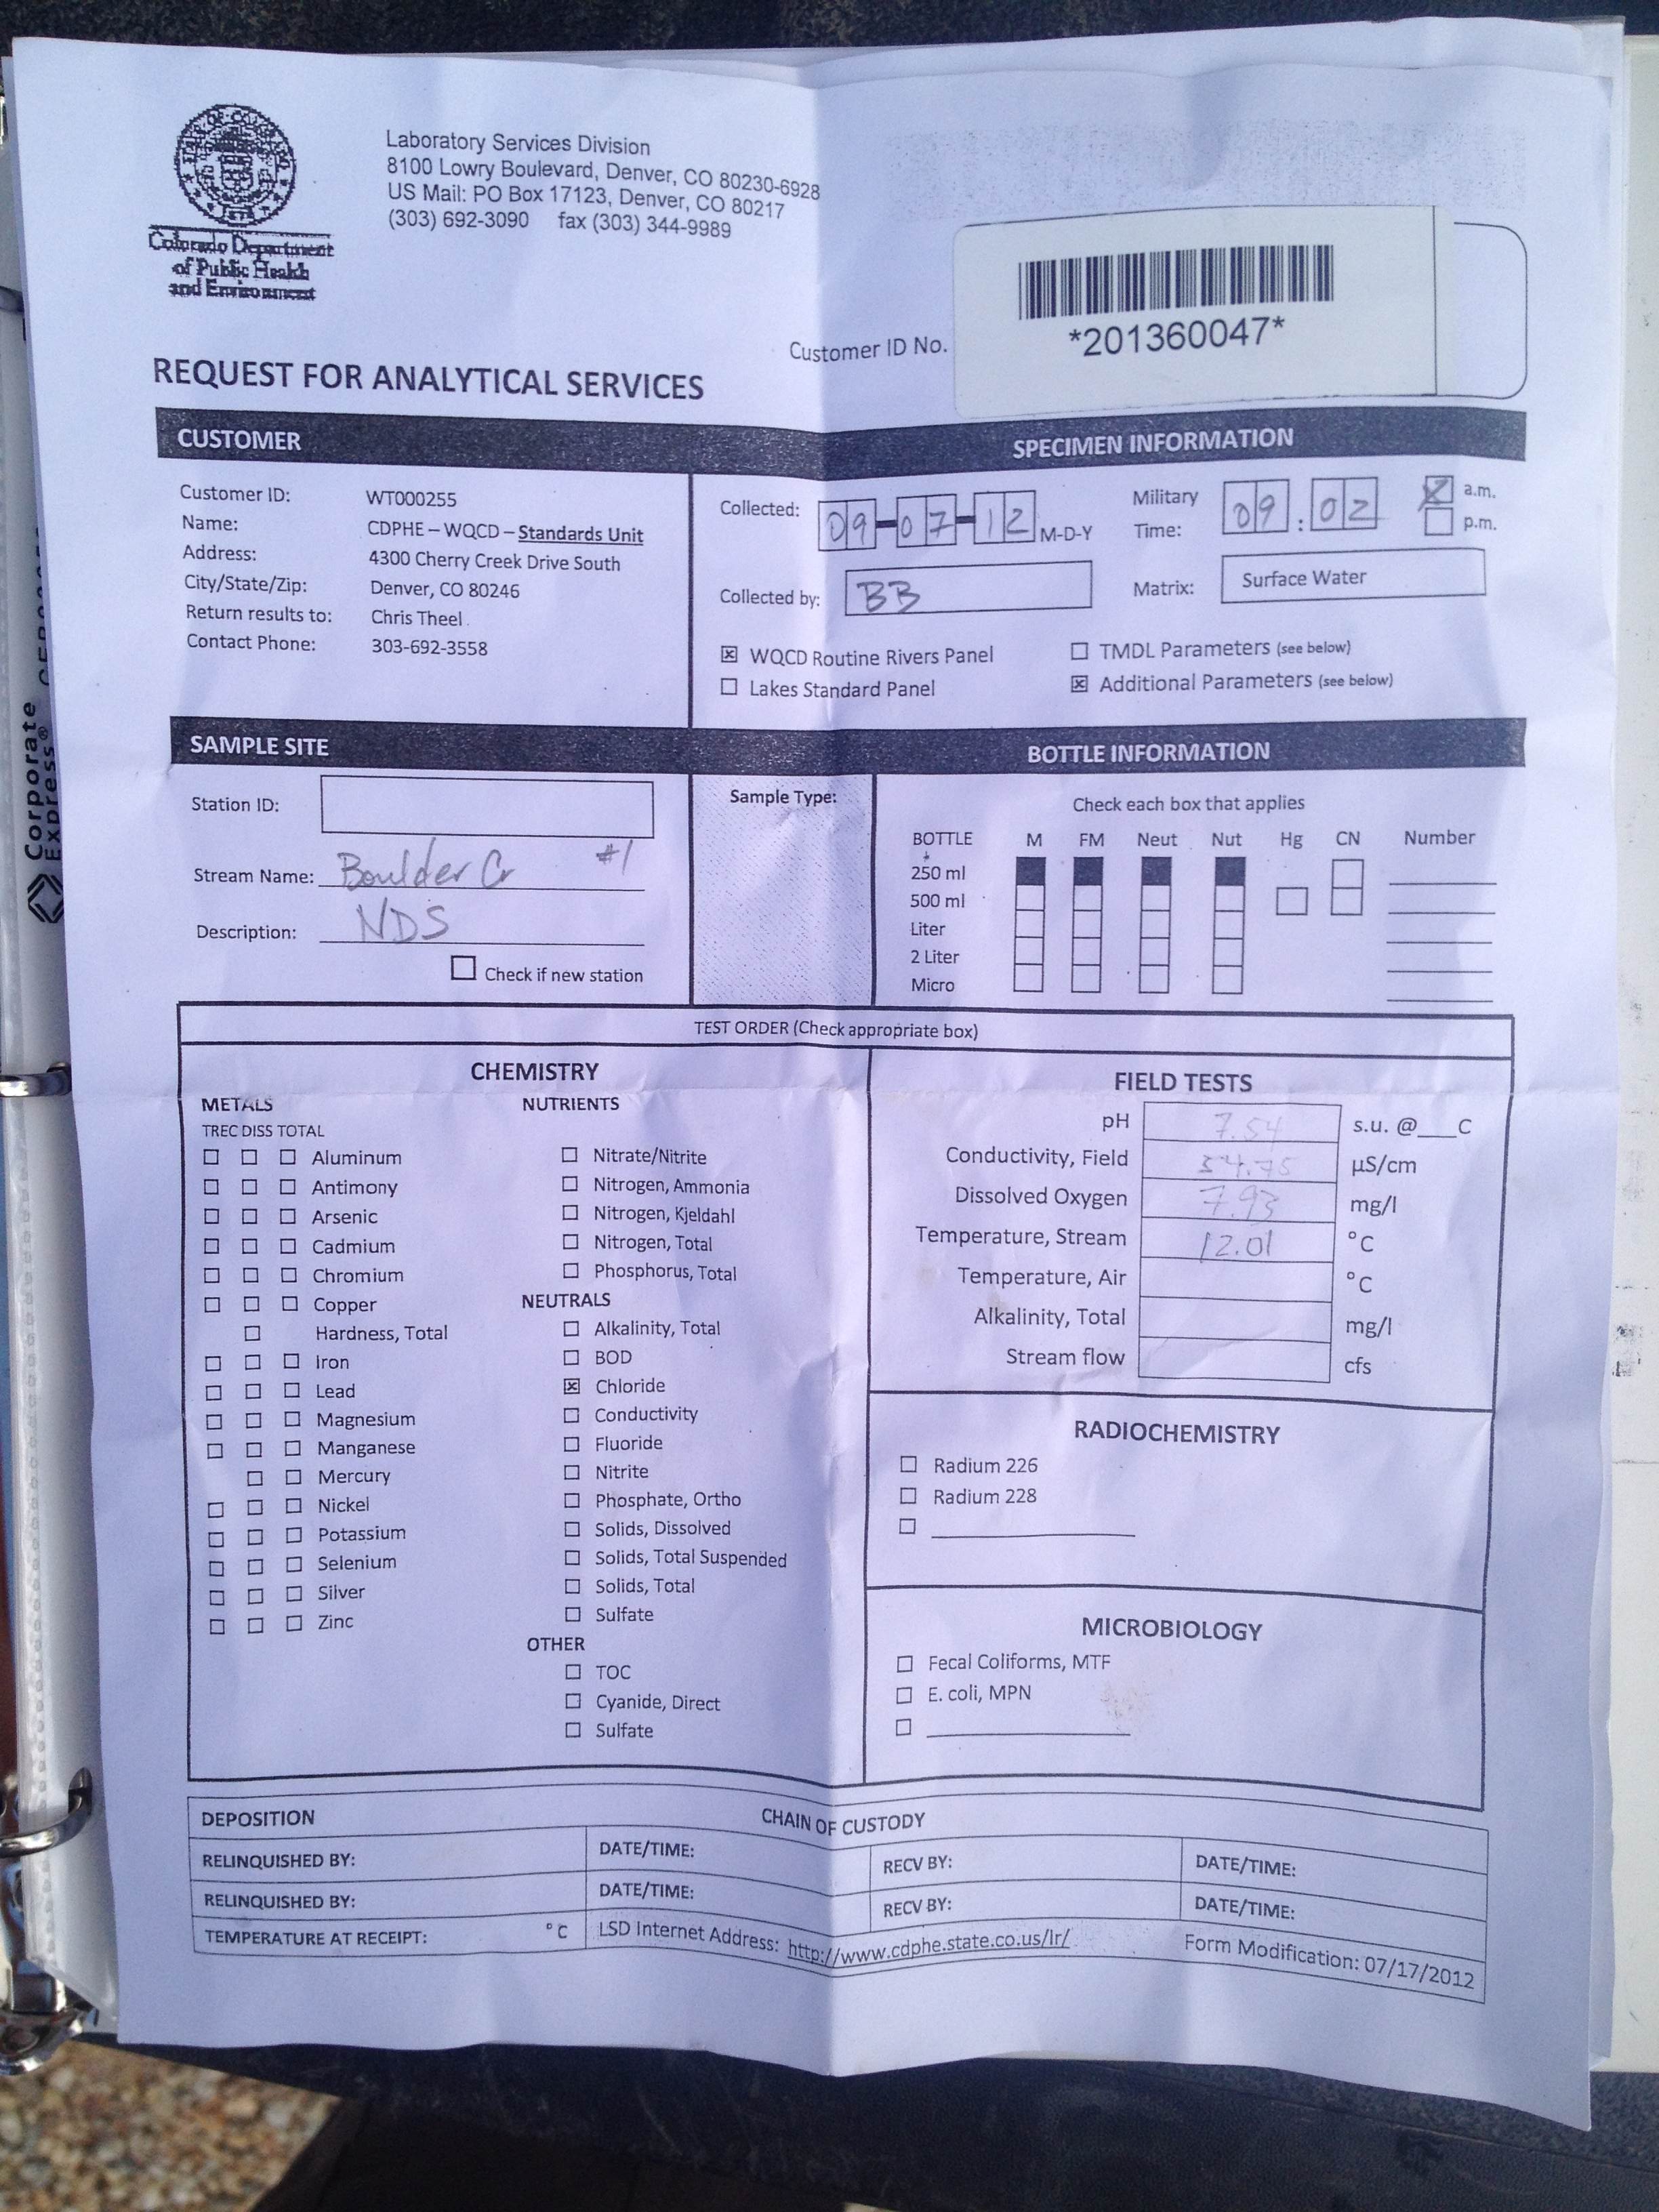 Laboratory Services Division
8100 Lowry Boulevard, Denver, CO 80230-6928
US Mail: PO Box 17123, Denver, CO 80217
(303) 692-3090 fax (303) 344-9989
Colorado Department
of Public Health
and Environment
Customer ID No.
*201360047*
REQUEST FOR ANALYTICAL SERVICES
CUSTOMER
Customer ID: WT000255
Name: CDPHE – WQCD – Standards Unit
Address: 4300 Cherry Creek Drive South
City/State/Zip: Denver, CO 80246
Return results to: Chris Theel
Contact Phone: 303-692-3558
SPECIMEN INFORMATION
Collected: 09-07-12 M-D-Y
Military Time: 09:02
a.m.
p.m.
Collected by: BB
Matrix: Surface Water
WQCD Routine Rivers Panel
TMDL Parameters (see below)
Lakes Standard Panel
Additional Parameters (see below)
SAMPLE SITE
Station ID:
Stream Name: Boulder Cr #1
Description: NDS
Check if new station
Sample Type:
BOTTLE INFORMATION
Check each box that applies
BOTTLE M FM Neut Nut Hg CN Number
250 ml
500 ml
Liter
2 Liter
Micro
TEST ORDER (Check appropriate box)
CHEMISTRY
METALS
TREC DISS TOTAL
Aluminum
Antimony
Arsenic
Cadmium
Chromium
Copper
Hardness, Total
Iron
Lead
Magnesium
Manganese
Mercury
Nickel
Potassium
Selenium
Silver
Zinc
NUTRIENTS
Nitrate/Nitrite
Nitrogen, Ammonia
Nitrogen, Kjeldahl
Nitrogen, Total
Phosphorus, Total
NEUTRALS
Alkalinity, Total
BOD
Chloride
Conductivity
Fluoride
Nitrite
Phosphate, Ortho
Solids, Dissolved
Solids, Total Suspended
Solids, Total
Sulfate
OTHER
TOC
Cyanide, Direct
Sulfate
FIELD TESTS
pH 7.54 s.u. @___C
Conductivity, Field 34.75 µS/cm
Dissolved Oxygen 7.93 mg/l
Temperature, Stream 12.01 °C
Temperature, Air °C
Alkalinity, Total mg/l
Stream flow cfs
RADIOCHEMISTRY
Radium 226
Radium 228
MICROBIOLOGY
Fecal Coliforms, MTF
E. coli, MPN
DEPOSITION CHAIN OF CUSTODY
RELINQUISHED BY: DATE/TIME: RECV BY: DATE/TIME:
RELINQUISHED BY: DATE/TIME: RECV BY: DATE/TIME:
TEMPERATURE AT RECEIPT: °C LSD Internet Address: http://www.cdphe.state.co.us/lr/ Form Modification: 07/17/2012
Corporate
Express®